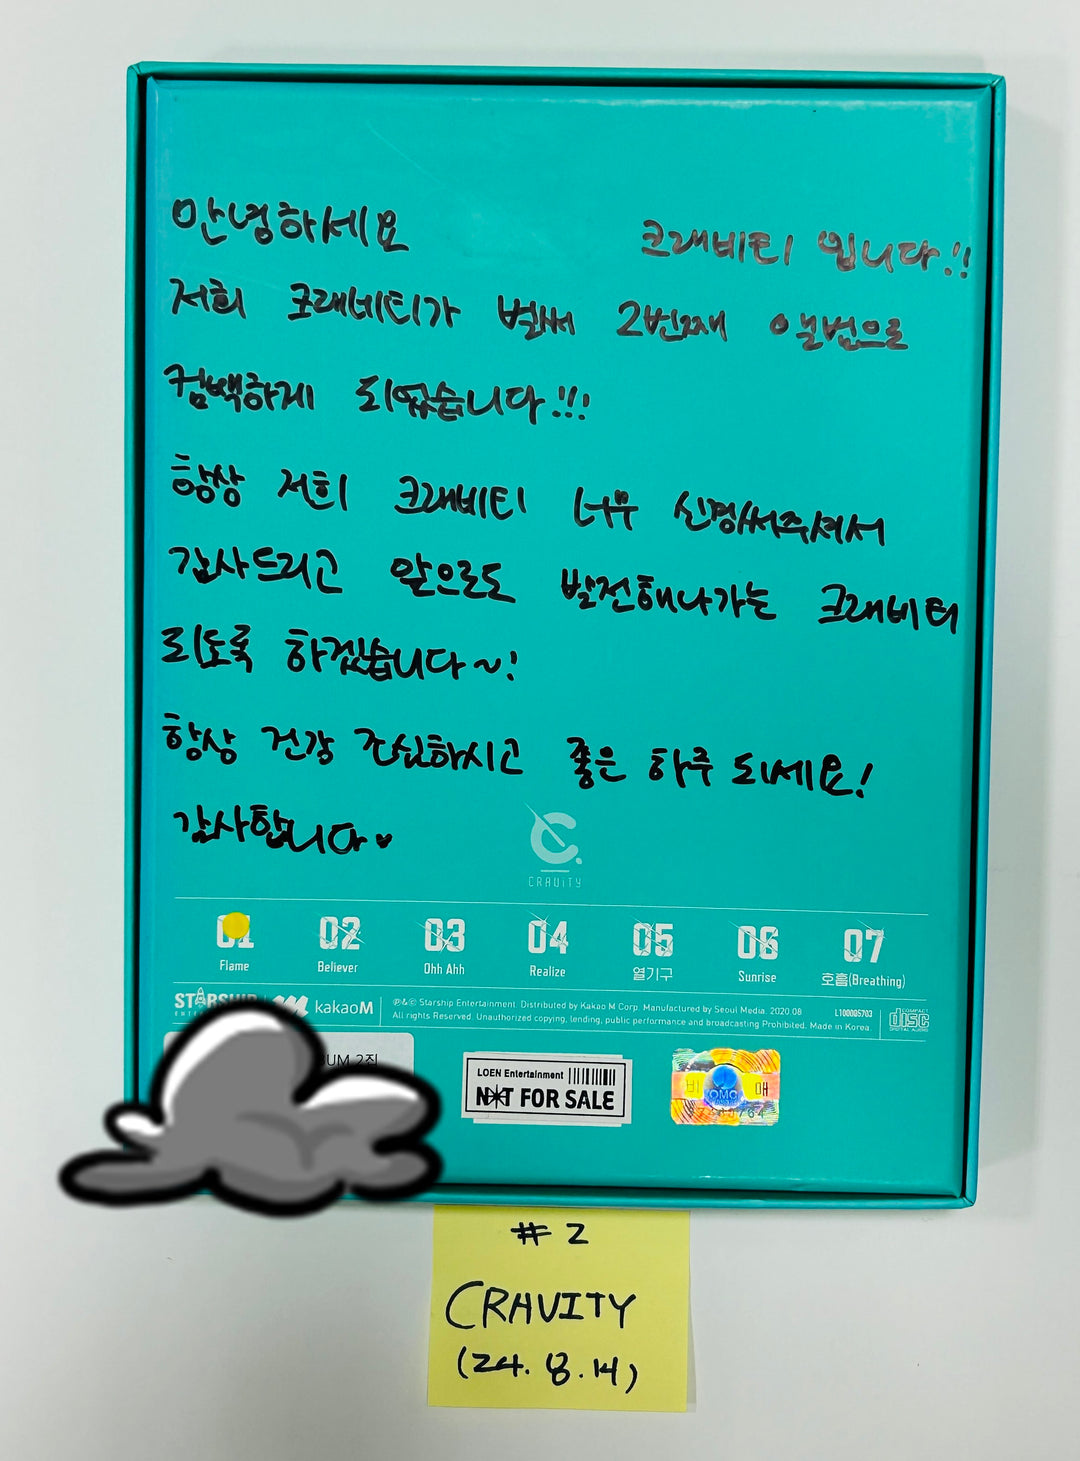 안녕하세요 크래비티 입니다.!!
저희 크래비티가 벌써 2번째 앨범으로
컴백하게 되었습니다.!!!
항상 저희 크래비티 너무 신경써주셔서
감사드리고 앞으로도 발전해나가는 크래비티
되도록 하겠습니다~!
항상 건강 조심하시고 좋은 하루 되세요!
감사합니다♥
CRAVITY
01 02 03 04 05 06 07
Flame Believer Ohh Ahh Realize 열기구 Sunrise 호흡(Breathing)
STARSHIP kakaoM
℗&© Starship Entertainment. Distributed by Kakao M Corp. Manufactured by Seoul Media. 2020.08 L100005703
All rights Reserved. Unauthorized copying, lending, public performance and broadcasting Prohibited. Made in Korea.
COMPACT disc DIGITAL AUDIO
UM 2집
LOEN Entertainment
NOT FOR SALE
비 매
OMC
#2
CRAVITY
(24.8.14)